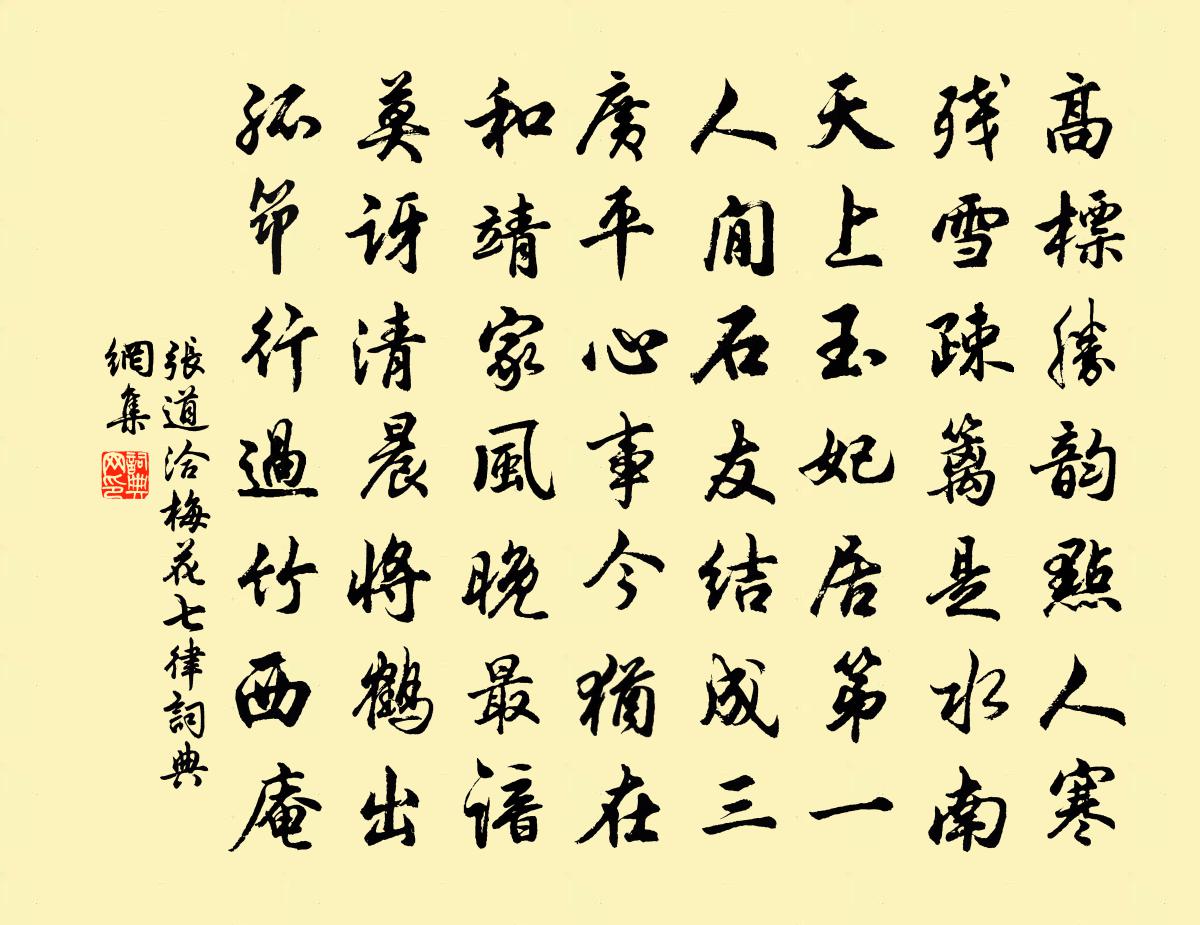 高標勝韵點人寒
殘雪疎籬是水南
天上玉妃居第一
人間石友結成三
廣平心事今猶在
和靖家風晚最諳
莫訝清晨將鶴出
孤筇行過竹西庵
張道洽梅花七律詞典
網集
詞典網印